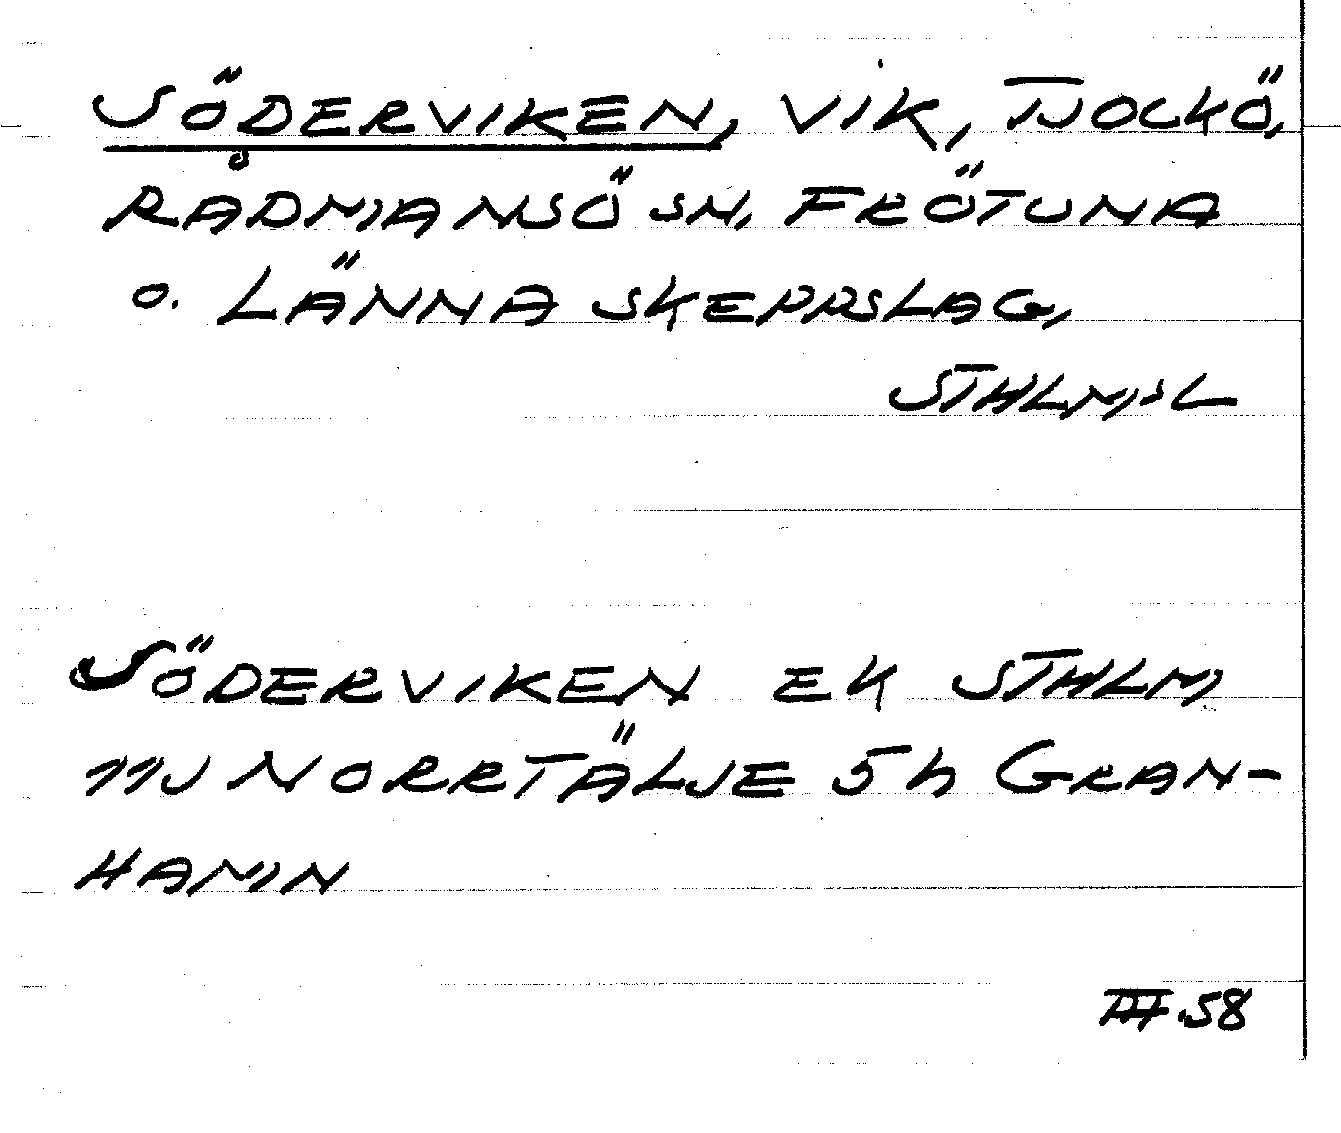 SÖDERVIKEN, VIK, TJOCKÖ,
RÅDMANSÖ SN, FRÖTUNA
o. LÄNNA SKEPPSLAG,
STHLMSL
SÖDERVIKEN EK STHLM
11J NORRTÄLJE 5h GRAN-
HAMN
III.58